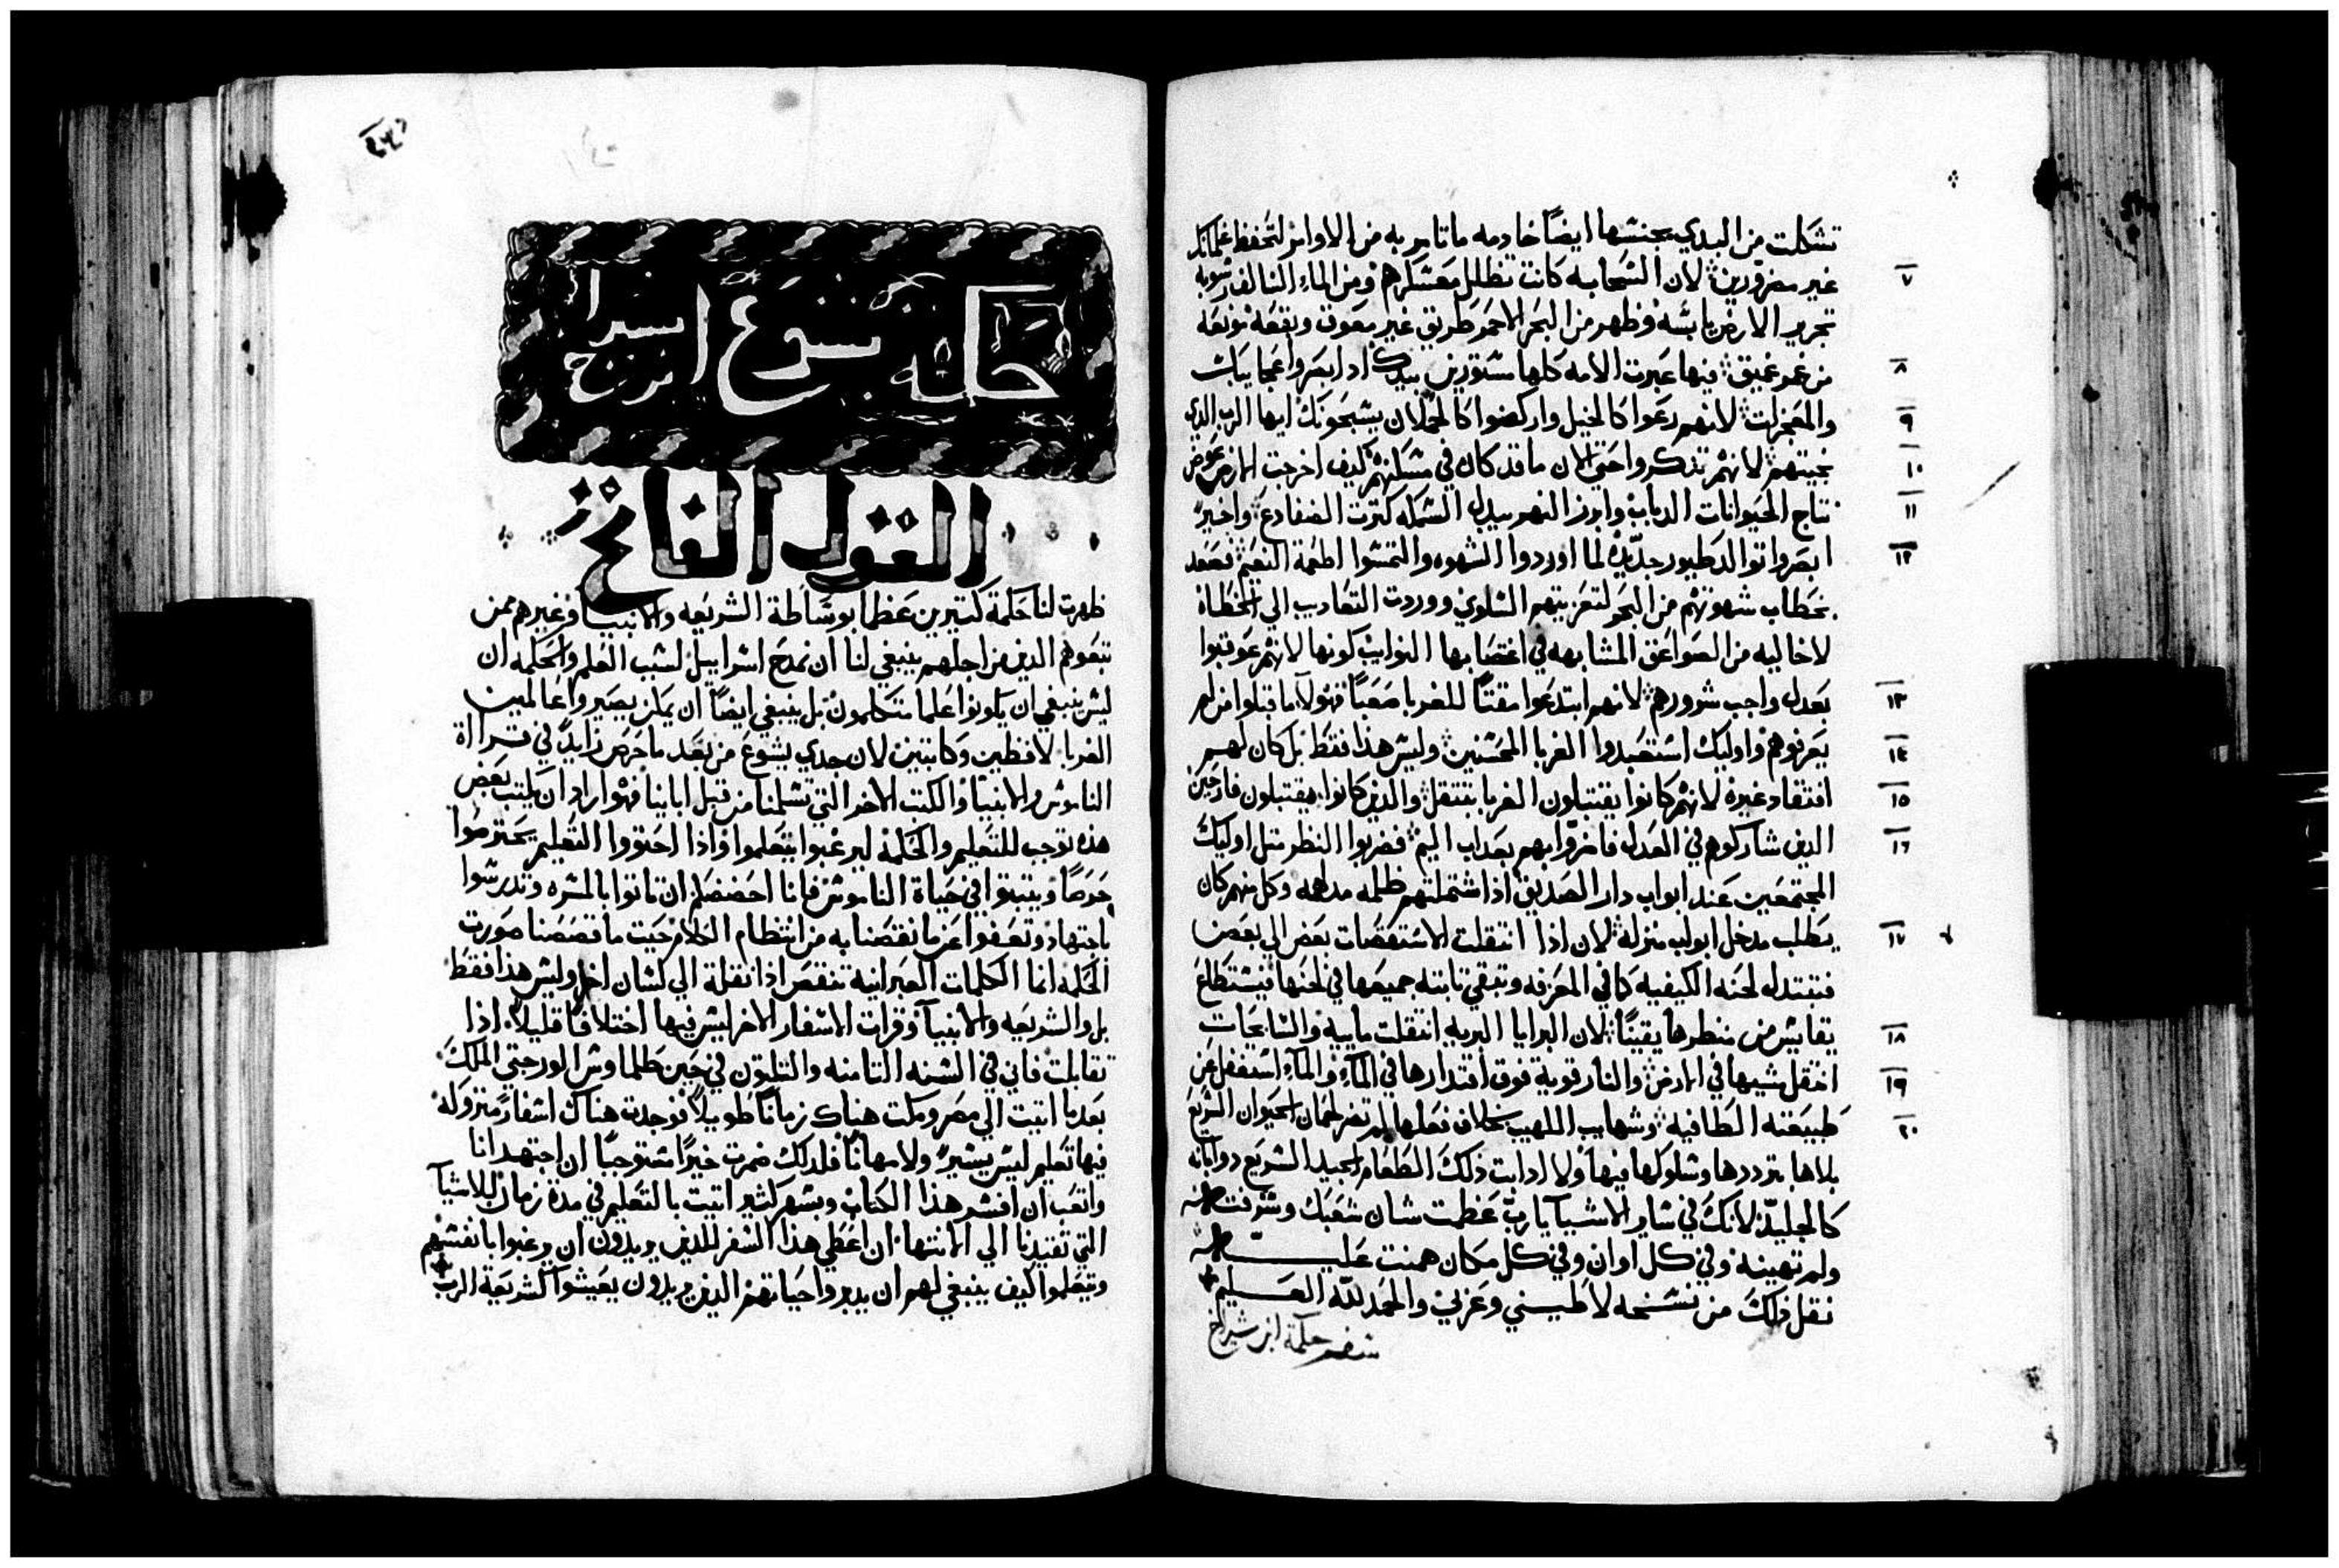 تشكلت من البدي بجنسها ايضاً خادمه ما تامر به من الاوامر لتحفظ غلمانك
٧ غير مضرورين لان السحابه كانت تظلل معسكرهم ومن الماء السالف رتوبه
تحرير الارض يابسه وظهر من البحر الاحمر طريق غير معوق وبقعه مونعه
٨ من غمر عميق فيها عبرت الامه كلها مستورين بيدك اذ ابصروا عجايبك
٩ والمعجزات لانهم رعوا كالخيل واركضوا كالحملان يسبحونك ايها الرب الذي
١٠ نجيتهم لانهم تذكروا حتى الان ما قد كان في مسكنهم كيف اخرجت الارض عوض
١١ نتاج الحيوانات الدباب وابرز النهر بدل السمك كثرت الضفادع واخيرً
١٢ ابصروا توالد طيور جديده لما اوردوا الشهوه والتمسوا اطعمة النعيم فصعد
بخطاب شهوتهم من البحر لتعزيتهم السلوي ووردت التعاديب الي الخطاة
لا خاليه من الصواعق المشابهه في اغتصابها النوايب كونها لانهم عوقبوا
١٣ بعدل واجب شرورهم لانهم ابتدعوا مقتاً للغربا صعباً فهولا ما قبلوا من لم
١٤ يعرفوهم واوليك استعبدوا الغربا المحسنين وليس هذا فقط بل كان لهم
١٥ افتقاد غيره لانهم كانوا يقتبلون الغربا بتثقل والذين كانوا يقتبلون فارحين
١٦ الذين شاركوهم في العدل فاضروا بهم بعداب اليم فضربوا النظر مثل اوليك
المجتمعين عند ابواب دار الصديق اذ اشتملتهم ظلمه مدلهمه وكل منهم كان
١٧ يطلب مدخل ابواب منزله لان اذا انتقلت الاستقصات بعض الي بعض
فتبتدله لحنه الكيفيه كما في المعزفه وتبقي ثابته جميعها في لحنها فيستطاع
١٨ يقايس من منظرها يقيناً لان البرايا البريه انتقلت ماييه والسابحات
١٩ انتقل مشيها في الارض والنار قوية فوق اقتدارها في الماء والماء استغفل عن
٢٠ طبيعته الطافيه وشهايب اللهيب بخلاف فعلها لم تضر لحمان الحيوان السريع
بلاها بترددها وسلوكها فيها ولا ادابت ذلك الطعام الجيد السريع دوابانه
كالجليد لانك في ساير الاشيا يا رب عظمت شان شعبك وشرفته
ولم تهينه وفي كل اوان وفي كل مكان همنت عليه
نقل ذلك من نسخه لاطيني وعربي والحمد لله العليم
سفر حكمة ابن شيراخ
حكمة يسوع ابن سيراخ
القول الفاتح
ظهرت لنا حكمة كتيرين عظما بوساطة الشريعه والانبيا وغيرهم ممن
تبعوهم الذين من اجلهم ينبغي لنا ان نمدح اسراييل لسبب العلم والحكمه ان
ليس ينبغي ان يكونوا علما متكلمون بل ينبغي ايضاً ان يمكن يصيروا عالمين
الغربا لافظين وكاتبين لان جدي يشوع من بعد ما حرص زايدً في قرااة
الناموس والانبيا والكتب الاخر التي تسلمنا من قبل ابايينا فهو اراد ان يكتب بعض
هذه توجب للتعليم والحكمة ليرغبوا يتعلموا واذا احتووا التعليم يحترموا
حرصاً ويتبتوا في حياة الناموس فانا احضضكم ان تاتوا بالمسره وتدرسوا
باجتهاد وتعفوا عن ما نقصنا به من انتظام الكلام حيت ما قصصنا صورت
الحكمة انما الكلمات العبرانيه تنقص اذا نقلة الي لسان اخر وليس هذا فقط
بل والشريعه والانبيا وقرات الاسفار الاخر ليس فيها اختلافاً قليلاً اذا
تقابلت فاني في السنه التامنه والتلتون في حين طلماوس الورجتي الملك
بعدما اتيت الي مصر ومكت هناك زماناً طويلاً فوجدت هناك اسفار متروكه
فيها تعليم ليس يسيرً ولا مهاناً فلدلك ضمرت خيراً ستوجباً ان اجتهد انا
واتعب ان افسر هذا الكتاب وبسهر كتير اتيت بالتعليم في مدة زمان للاشيا
التي تقيدنا الي الانتها ان اعطي هذا السفر للذين يريدون ان يرغبوا بانفسهم
ويتعلموا كيف ينبغي لهم ان يدبروا حياتهم الذين يريدون يعيشوا كشريعة الرب